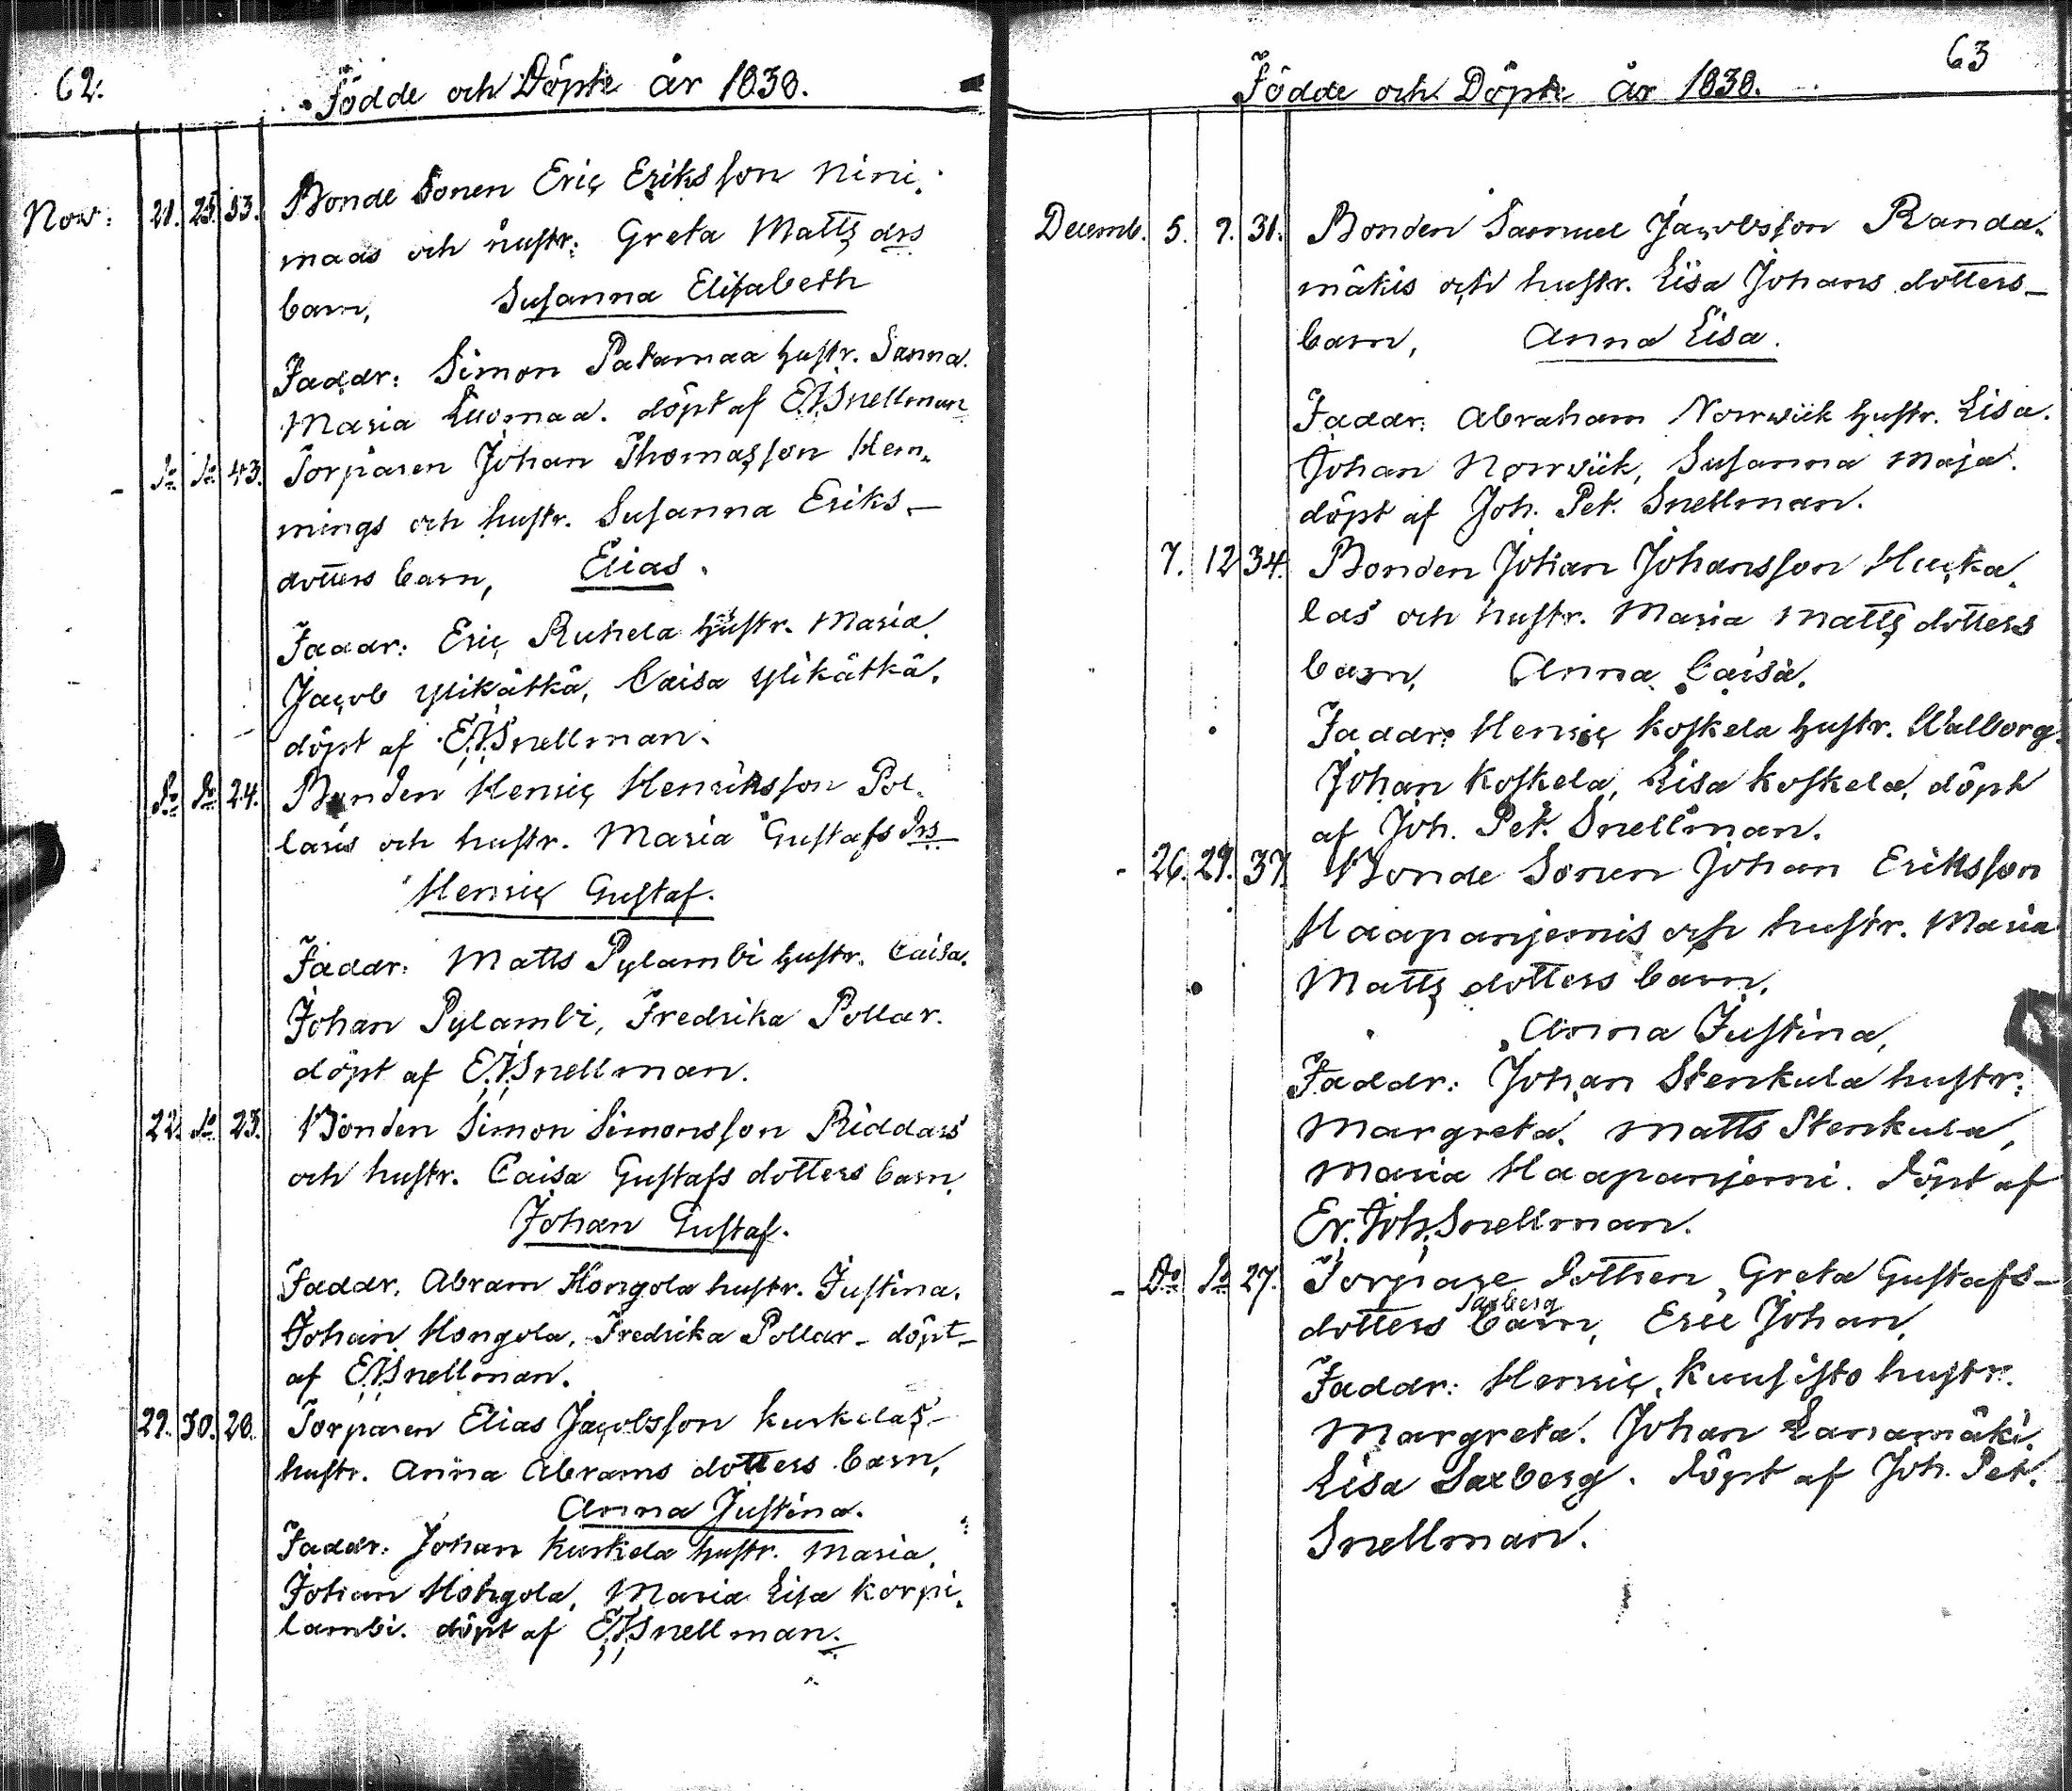 62.
Födde och Döpte år 1838.
Nov: 21. 25. 33. Bonde Sonen Eric Eriksson Nini,
maas och hustr: Greta Matts drs
barn, Susanna Elisabeth
Faddr: Simon Patamaa hustr. Sanna.
Maria Luomaa. döpt af E.J.Snellman
- do do 43. Torparen Johan Thomasson Hem,
mings och hustr. Susanna Eriks-
dotters barn, Elias.
Faddr: Eric Ruhela hustr. Maria,
Jacob Ylikätkä, Caisa Ylikätkä,
döpt af E.J.Snellman.
do do 24. Bonden Henric Henriksson Pol,
laris och hustr. Maria Gustafs drs
Henric Gustaf.
Faddr: Matts Pylambi hustr. Caisa.
Johan Pylambi, Fredrika Pollar.
döpt af E.J.Snellman.
22. do 23. Bonden Simon Simonsson Riddars
och hustr. Caisa Gustafs dotters barn,
Johan Gustaf.
Faddr. Abram Hongola hustr. Justina.
Johan Hongola, Fredrika Pollar - döpt
af E.J.Snellman.
29. 30. 28. Torparen Elias Jacobsson Kurkelas
hustr. Anna Abrams dotters barn,
Anna Justina.
Faddr: Johan Kurkela hustr. Maria,
Johan Hongola, Maria Lisa Korpi,
lambi. döpt af E.J.Snellman.
63
Födde och Döpte år 1838.
Decemb. 5. 9. 31. Bonden Samuel Jacobsson Randa,
mäkis och hustr. Lisa Johans dotters
barn, Anna Lisa.
Faddr: Abraham Norrwiik hustr. Lisa.
Johan Norrwiik, Susanna Maja.
döpt af Joh. Pet. Snellman.
7. 12 34. Bonden Johan Johansson Huka,
las och hustr. Maria Matts dotters
barn, Anna Caisa.
Faddr: Henric Koskela hustr. Walborg.
Johan Koskela, Lisa Koskela, döpt
af Joh. Pet. Snellman.
- 26. 29. 37. Bonde Sonen Johan Eriksson
Haapaniemis och hustr. Maria
Matts dotters barn,
Anna Justina,
Faddr: Johan Stenkula hustr:
Margreta. Matts Stenkula,
Maria Haapanjemi. döpt af
Er. Joh. Snellman.
- Do do 27. Torpare dottren Greta Gustafs-
Saxberg
dotters barn, Eric Johan,
Faddr: Henric Kuusisto hustr.
Margreta. Johan Lanamäki.
Lisa Saxberg. döpt af Joh. Pet.
Snellman.